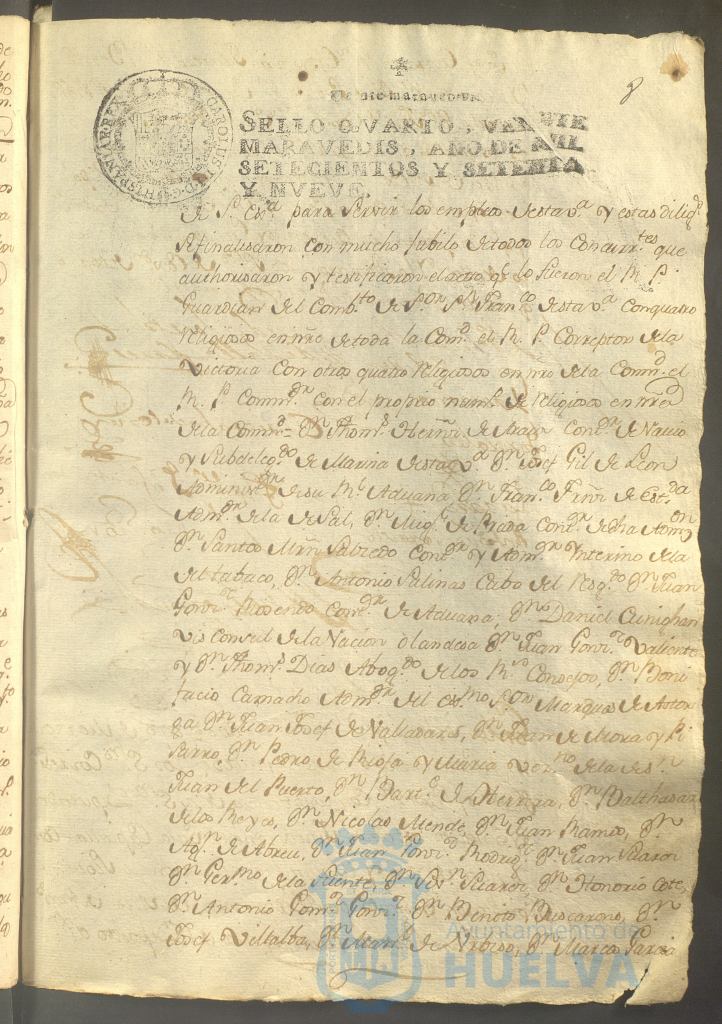 8
Veinte maravedis.
SELLO QVARTO, VEINTE
MARAVEDIS, AÑO DE MIL
SETECIENTOS Y SETENTA
Y NVEVE.
CAROLUS III D.G. HISPANIAR REX
de S. Exª para servir los empleos de esta vª y estas dilig.
se finalisaron con mucho Jubilo de todos los Concurr.tes que
authorisaron y testificaron el acto q.e lo fueron el R. P.
Guardian del Comb.to de S.or S.n Fran.co de esta vª con quatro
Religiosos en nre de toda la Com.d el R. P. Correptor de la
Victoria con otros quatro Religiosos en nre de la Comm.d el
R. P. Comm.dr con el proprio num.o de Religiosos en nre
de la Comm.d = D.n Thom.s Herñ.z de Cont.or de Navio
y Subdeleg.do de Marina de esta vª D.n Josef Gil de Leon
Administ.or de su R.l Aduana D.n Fran.co de
Adm.or de la de Sal, D.n Mig.l de Prada Cont.or de dha Adm.on
D.n Santos Mrñ Salzedo Cont.or y Adm.or Ynterino de la
del tabaco, D.n Antonio Salinas Cabo del Resg.do D.n Juan
Gonz.z Cont.or de Aduana, D.n Daniel Cunighan
Vis Consul de la Nacion olandesa D.n Juan Gonz.z Valiente
y D.n Thom.s Dias Abog.do de los R.s Consejos, D.n Boni
facio Camacho Adm.or del ex.mo S.or Marques de Astor
ga D.n Juan Josef de Valladares, D.n Juan de Mora y Pi
sarro, D.n Pedro de Rioja y Maria de la de S.n
Juan del Puerto, D.n Bart.e de Herrera, D.n Balthasar
de los Reyes, D.n Nicolas Mende, D.n Juan Ramos, D.n
Ag.n de Abreu, D.n Juan Gonz.z Rodrig.z D.n Juan Suares
D.n Ger.mo de la Fuente, D.n Suares, D.n Honorio Cote,
D.n Antonio Gom.z Gonz.z D.n Benito D.n
Josef Villalba, D.n Man.l de D.n Marco Garcia
Ayuntamiento de
HUELVA